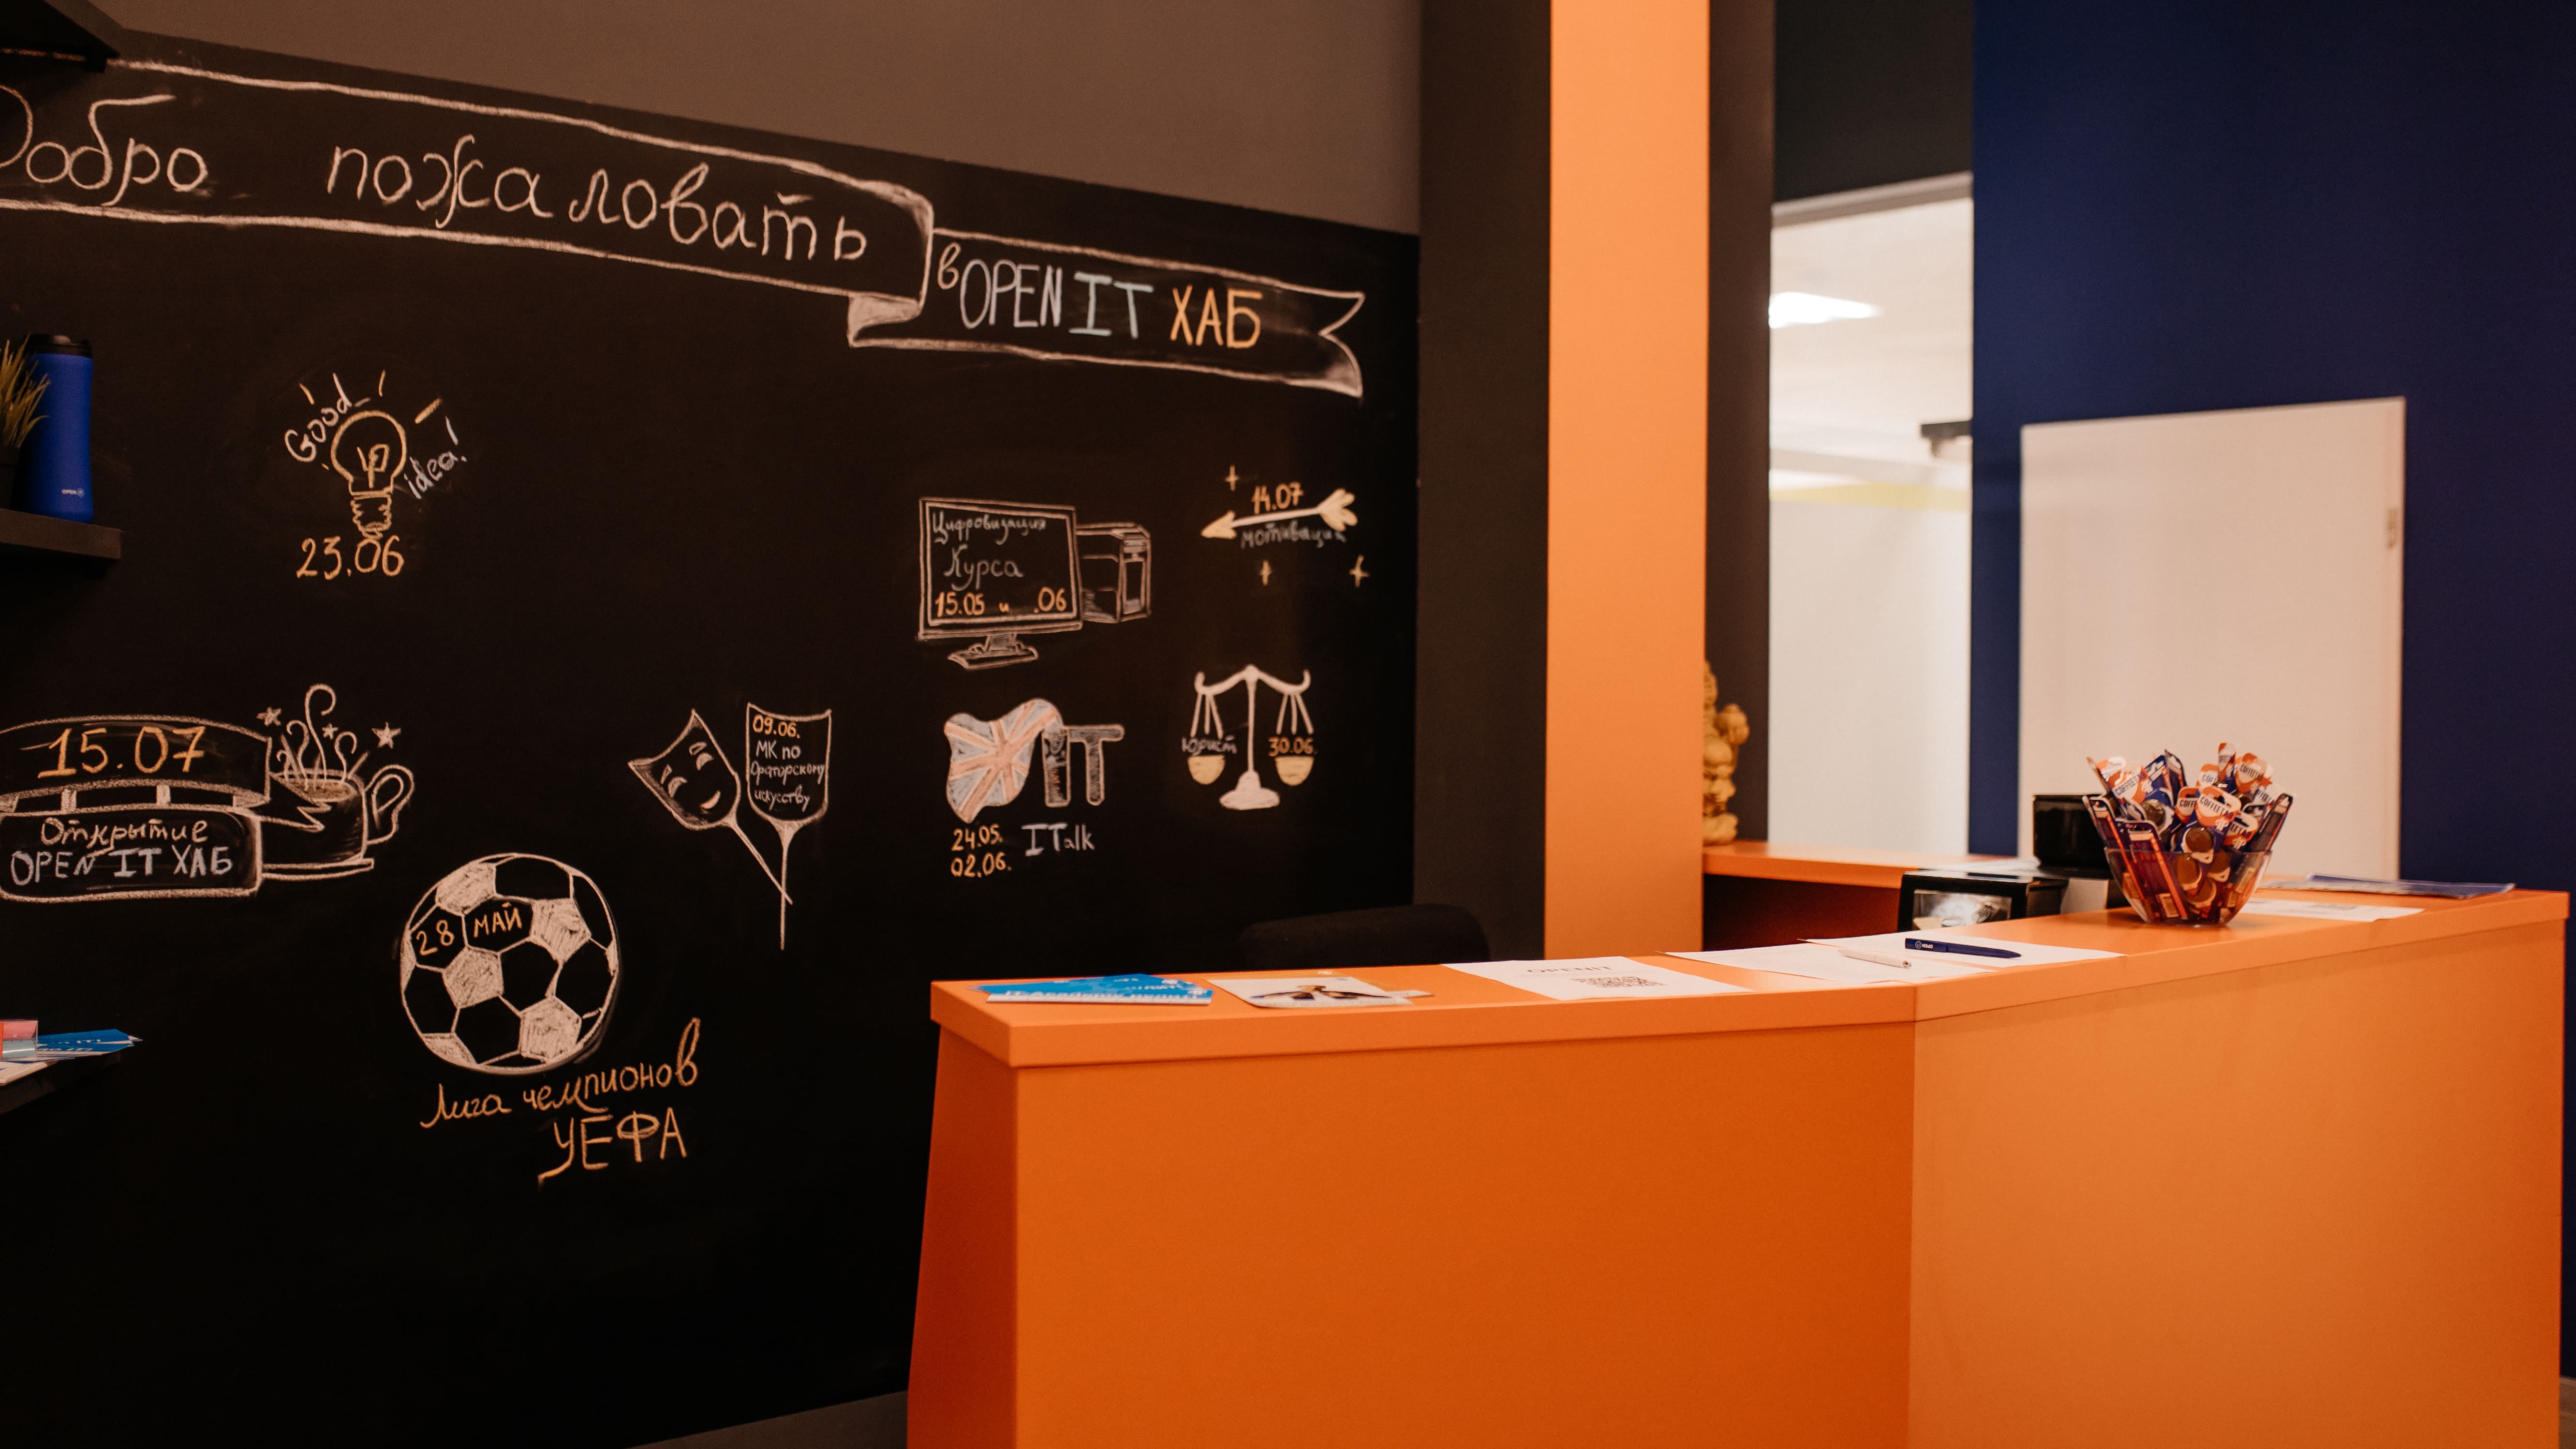 Добро пожаловать
в OPEN IT ХАБ
Good
idea!
23.06
Цифровизация
Курса
15.05 и .06
14.07
мотивация
15.07
Открытие
OPEN IT ХАБ
09.06.
МК по
Ораторскому
искусству
IT
24.05.
02.06.
ITalk
Юрист 30.06.
28 МАЙ
Лига чемпионов
УЕФА
OPEN
OPEN IT
COFFEE